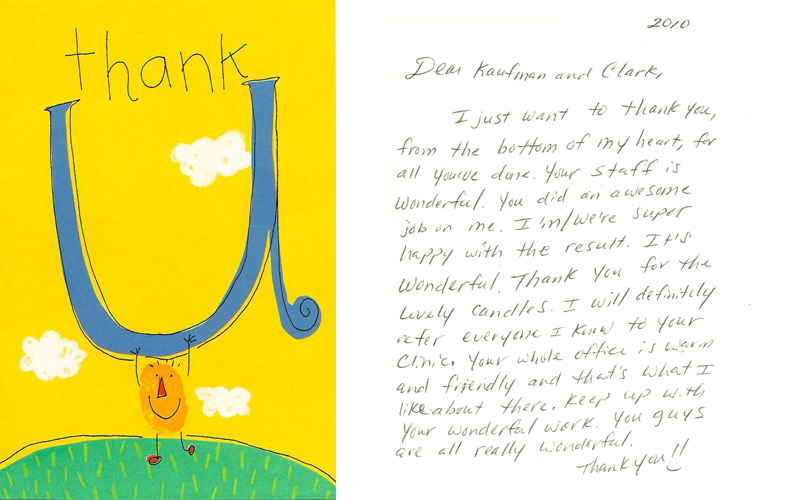 thank
U
2010
Dear Kaufman and Clark,
I just want to thank you,
from the bottom of my heart, for
all youve done. Your staff is
wonderful. You did an awesome
job on me. I'm/We're super
happy with the result. It's
wonderful. Thank you for the
lovely candles. I will definitely
refer everyone I know to your
clinic. Your whole office is warm
and friendly and that's what I
like about there. Keep up with
your wonderful work. You guys
are all really wonderful.
Thank you!!